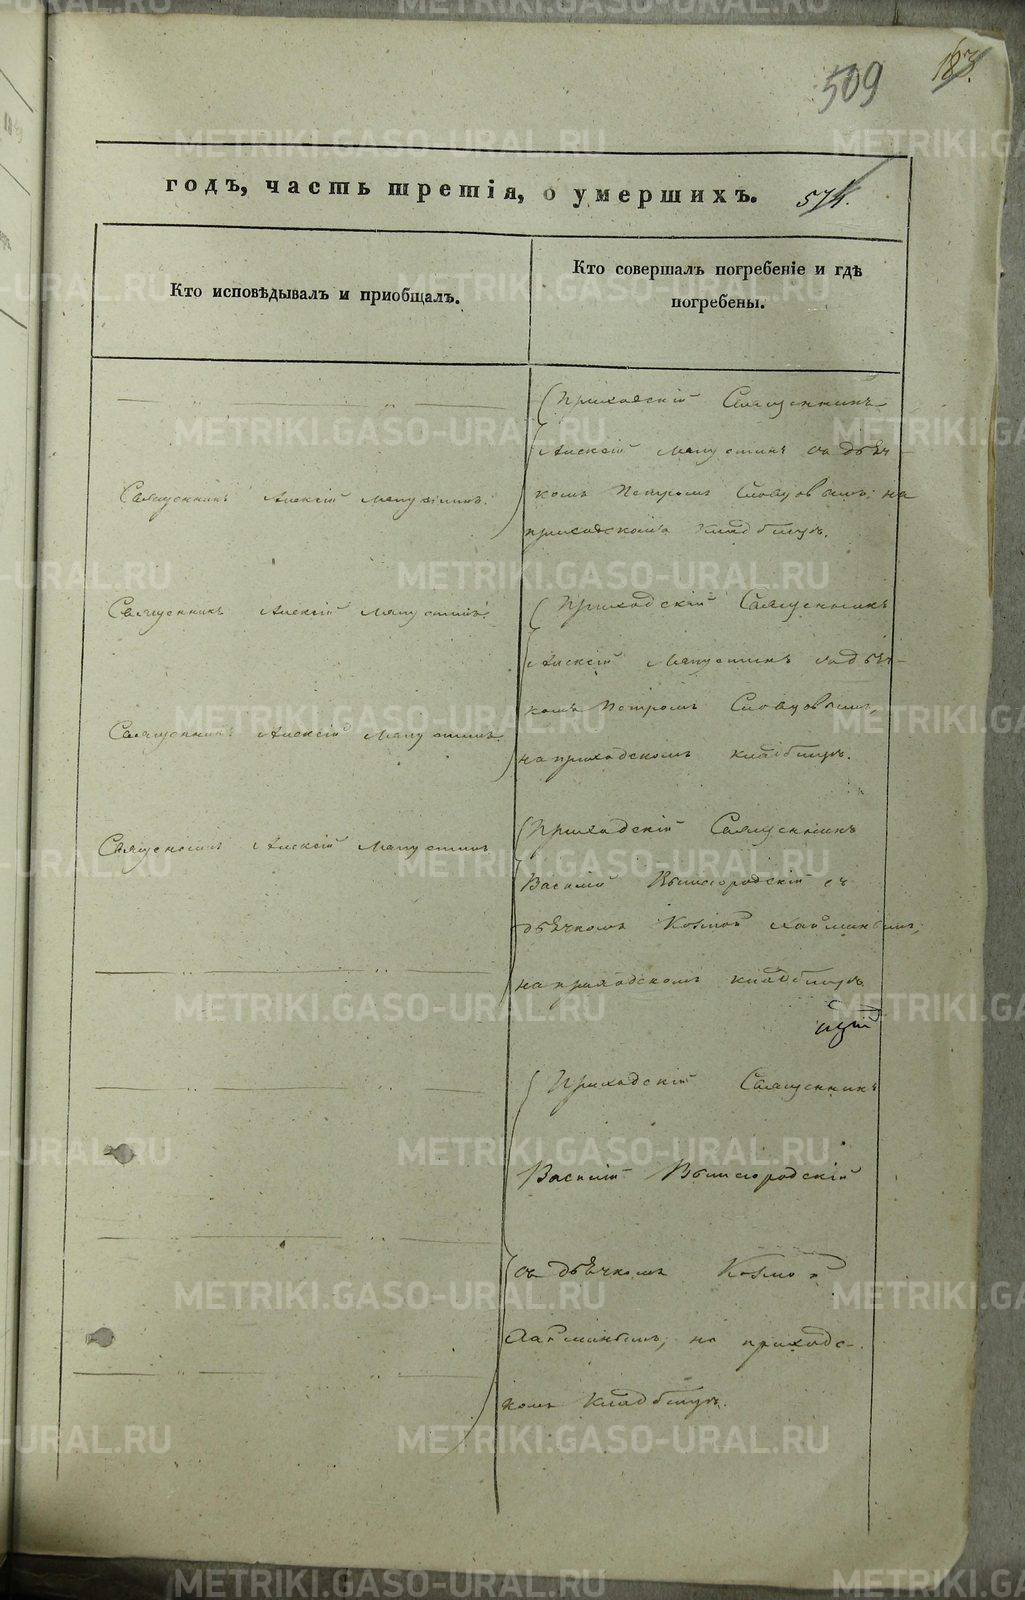 509
183.
годъ, часть третія, о умершихъ. 574.
Кто исповѣдывалъ и приобщалъ.
Кто совершалъ погребеніе и гдѣ
погребены.
Приходскій Священникъ
Алексій Мапустинъ съ дьяч-
комъ Петромъ Словцовымъ, на
приходскомъ кладбищѣ.
Священникъ Алексій Мапустинъ.
Священникъ Алексій Мапустинъ.
Приходскій Священникъ
Алексій Мапустинъ съ дьяч-
комъ Петромъ Словцовымъ,
на приходскомъ кладбищѣ.
Священникъ Алексій Мапустинъ.
Священникъ Алексій Мапустинъ
Приходскій Священникъ
Василій Вышгородскій съ
дьячкомъ Козмою
на приходскомъ кладбищѣ
Приходскій Священникъ
Василій Вышгородскій
съ дьячкомъ Козмою
на приходс-
комъ кладбищѣ.
METRIKI.GASO-URAL.RU